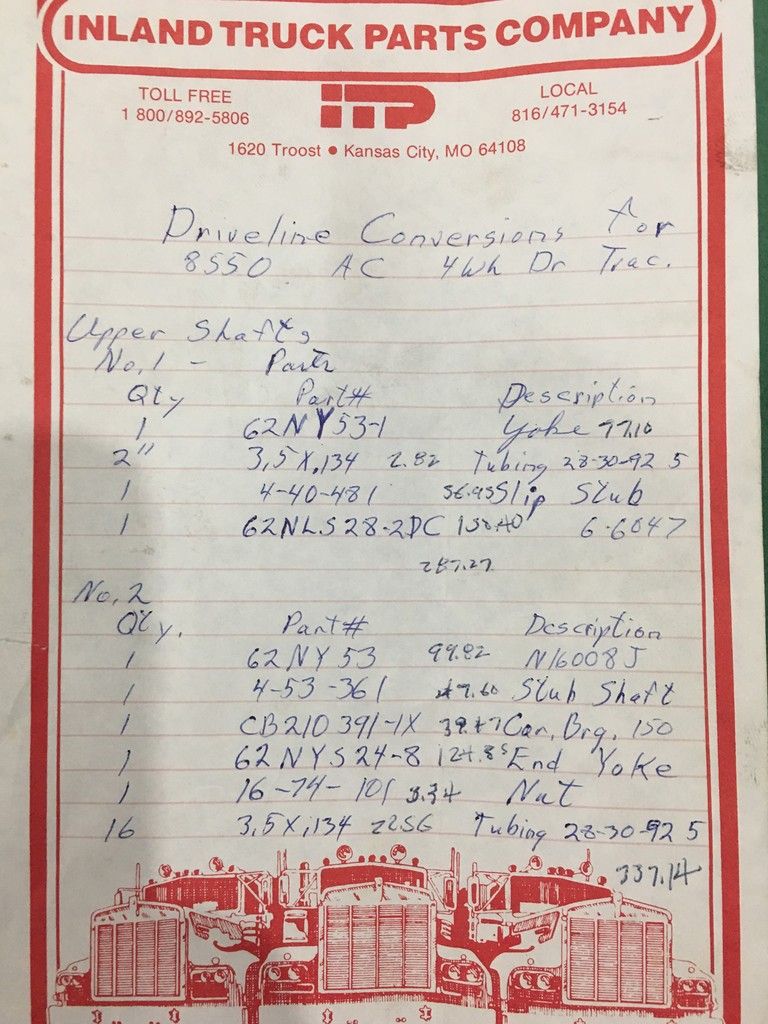 INLAND TRUCK PARTS COMPANY
TOLL FREE
1 800/892-5806
ITP
LOCAL
816/471-3154
1620 Troost • Kansas City, MO 64108
Driveline Conversions for
8550 AC 4Wh Dr Trac.
Upper Shafts
No. 1 - Parts
Qty Part# Description
1 62NY53-1 Yoke 97.10
2" 3,5X,134 2.82 Tubing 28-30-92 5
1 4-40-481 56.95 Slip Stub
1 62NLS28-2DC 130.40 6-6047
287.27
No. 2
Qty. Part# Description
1 62NY53 99.82 N16008J
1 4-53-361 47.60 Stub Shaft
1 CB210391-1X 39.47 Can. Brg. 150
1 62NYS24-8 124.85 End Yoke
1 16-74-101 3.34 Nut
16 3,5X,134 22.56 Tubing 28-30-92 5
337.14